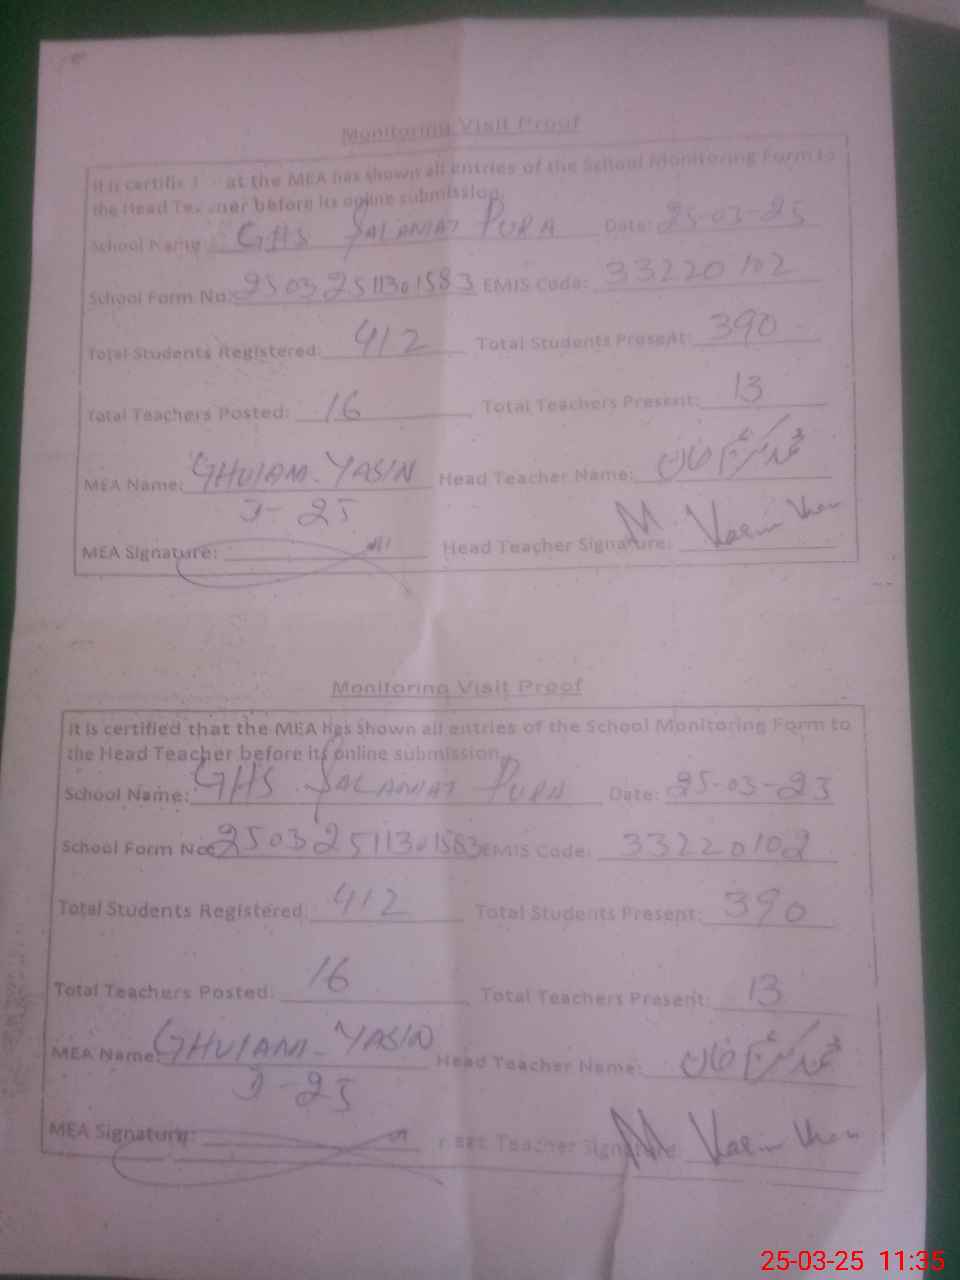 Monitoring Visit Proof
It is certified that the MEA has shown all entries of the School Monitoring Form to
the Head Teacher before its online submission.
School Name: GHS SALAMAT PURA Date: 25-03-25
School Form No: 25032511301583 EMIS Code: 33220102
Total Students Registered: 412 Total Students Present: 390
Total Teachers Posted: 16 Total Teachers Present: 13
MEA Name: GHULAM-YASIN Head Teacher Name: محمد خان
J-25
MEA Signature: Head Teacher Signature: M. Khan
Monitoring Visit Proof
It is certified that the MEA has shown all entries of the School Monitoring Form to
the Head Teacher before its online submission.
School Name: GHS SALAMAT PURA Date: 25-03-25
School Form No: 25032511301583 EMIS Code: 33220102
Total Students Registered: 412 Total Students Present: 390
Total Teachers Posted: 16 Total Teachers Present: 13
MEA Name: GHULAM-YASIN Head Teacher Name: محمد خان
J-25
MEA Signature: Head Teacher Signature: M. Khan
25-03-25 11:35